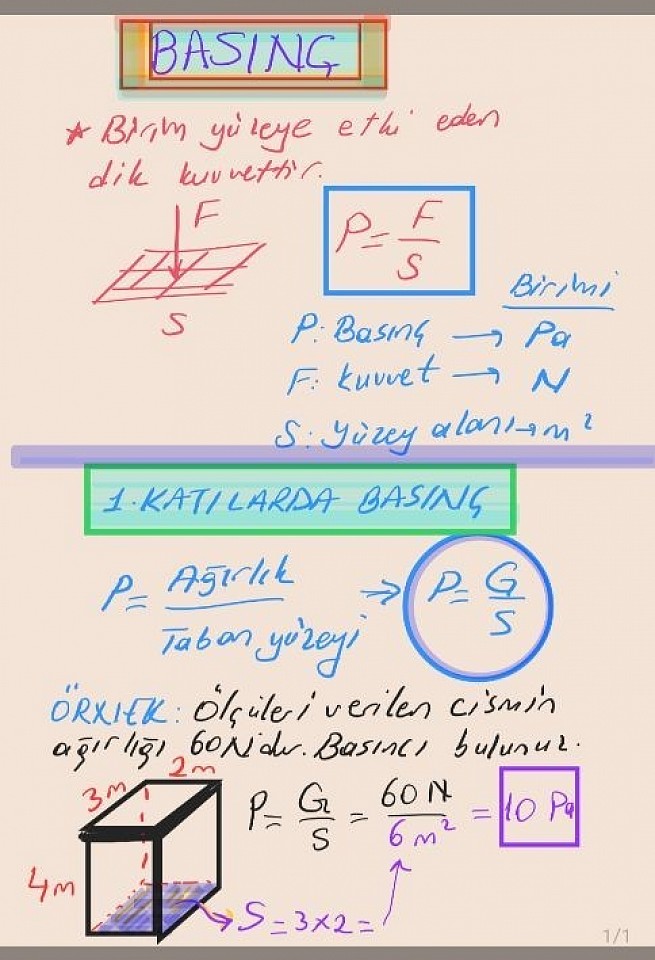 BASINÇ
* Birim yüzeye etki eden
dik kuvvettir.
F
S
P = F/S
Birimi
P: Basınç → Pa
F: Kuvvet → N
S: Yüzey alanı → m²
1. KATILARDA BASINÇ
P = Ağırlık / Taban yüzeyi ⇒ P = G/S
ÖRNEK: Ölçüleri verilen cismin
ağırlığı 60N'dır. Basıncı bulunuz.
3m 2m
4m
P = G/S = 60 N / 6 m² = 10 Pa
S = 3x2 =
1/1